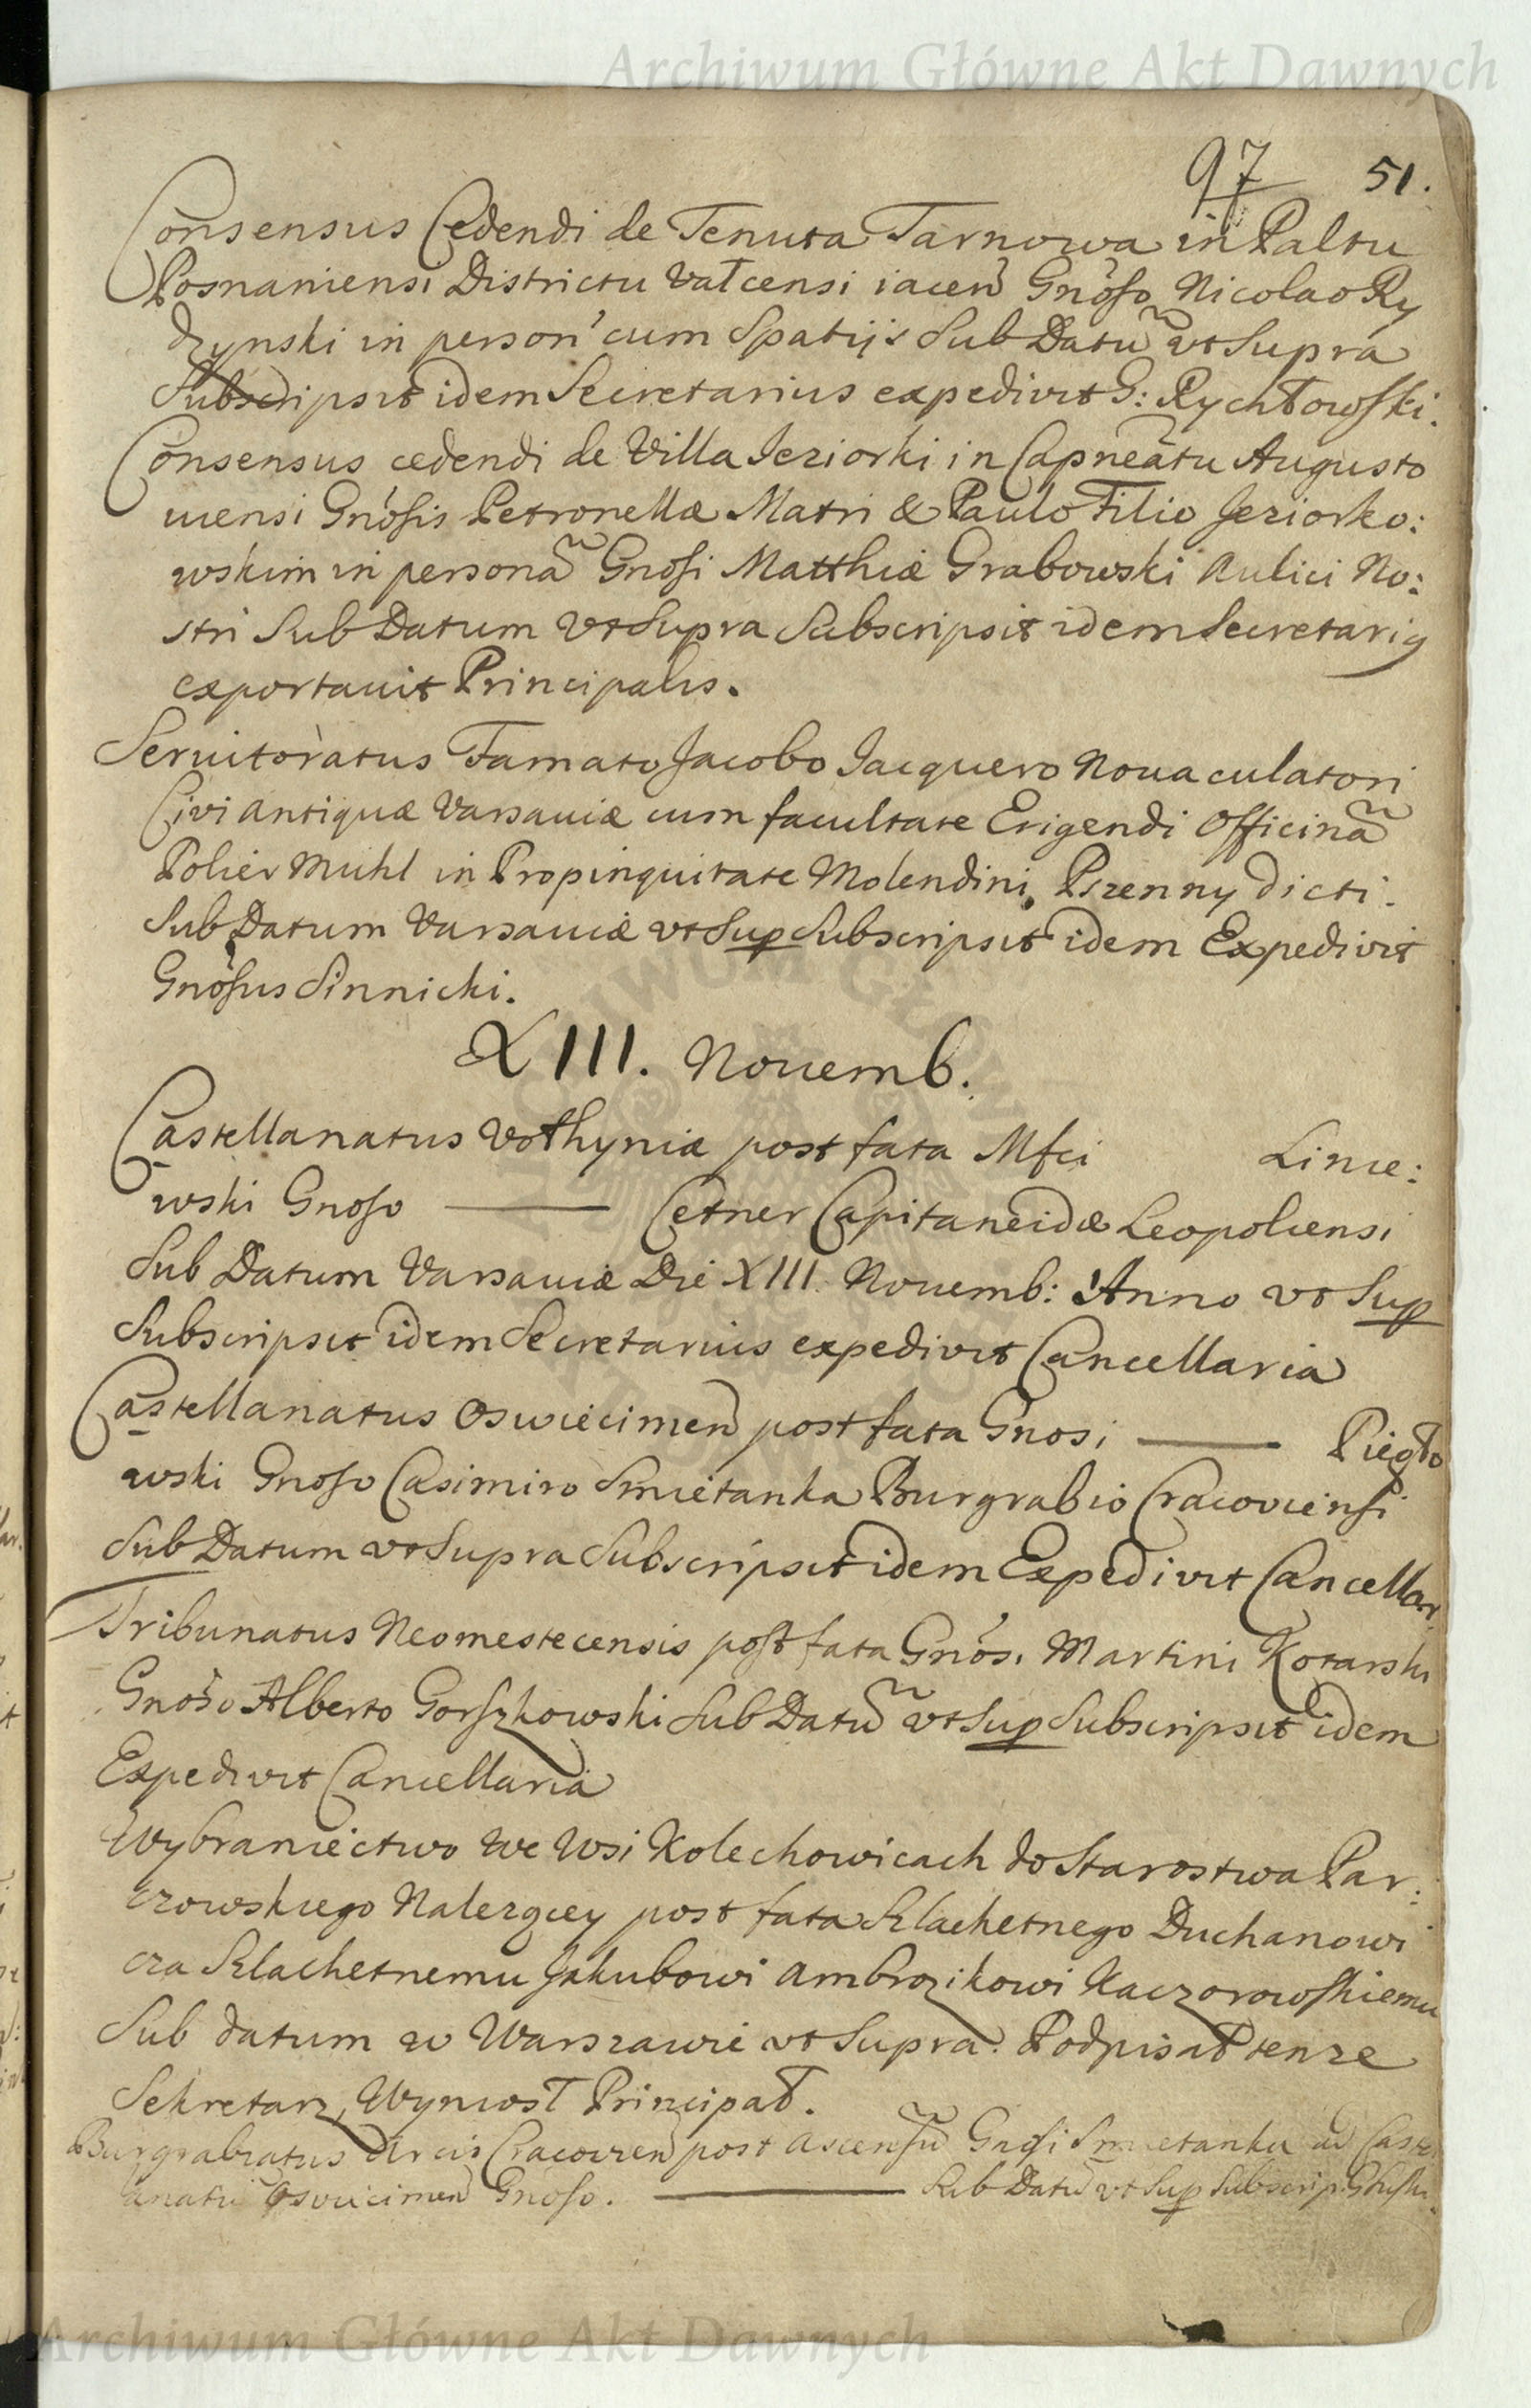 Archiwum Główne Akt Dawnych
97 51.
Consensus Cedendi de Tenuta Tarnowa in Paltu
Posnaniensi Districtu Vałcensi iacen Gnoso Nicolao Ry
dzynski in person cum Spatijs Sub Datu vt Supra
Subscripsit idem Secretarius expedivit G: Rychłowski.
Consensus cedendi de Villa Jeziorki in Capneatu Augusto
uiensi Gnosis Petronellæ Matri & Paulo Filio Jeziorko:
wskim in persona Gnosi Matthiæ Grabowski Aulici No:
stri Sub Datum vt Supra Subscripsit idem Secretarig
exportauit Principalis.
Seruitoratus Famato Jacobo Jacquero Nouaculatori
Civi Antiquæ Varsauiæ cum facultate Erigendi Officina
Polier Muhl in Propinquitate Molendini Pszenny dicti.
Sub Datum Varsauiæ vt Sup Subscripsit idem Expedivit
Gnosus Sinnicki.
XIII. Nouemb.
Castellanatus Vołhyniæ post fata Mfci Linie:
wski Gnoso Cetner Capitaneidæ Leopoliensi
Sub Datum Varsauiæ Die XIII. Nouemb: Anno vt Sup
Subscripsit idem Secretarius expedivit Cancellaria
Castellanatus Oswiecimen post fata Gnosi Piegło
wski Gnoso Casimiro Smietanka Burgrabio Cracoviensi
Sub Datum vt Supra Subscripsit idem Expedivit Cancellar
Tribunatus Neomestecensis post fata Gnosi Martini Kotarski
Gnoso Alberto Gorszkowski Sub Datu vt Sup Subscripsit idem
Expedivit Cancellaria
Wybraniectwo we Wsi Kolechowicach do Starostwa Par:
czowskiego Nalezącey post fata Szlachetnego Duchanowi
cza Szlachetnemu Jakubowi Ambrozikowi Kaczorowskiemu
Sub datum w Warszawie vt Supra. Podpisał tenze
Sekretarz, Wyniosł Principał.
Burgrabiatus Arcis Cracovien post Ascensu Gnosi Smietanka ad Caste
anatu Oswiecimen Gnoso. Sub Datu vt Sup Subscrip
Archiwum Główne Akt Dawnych